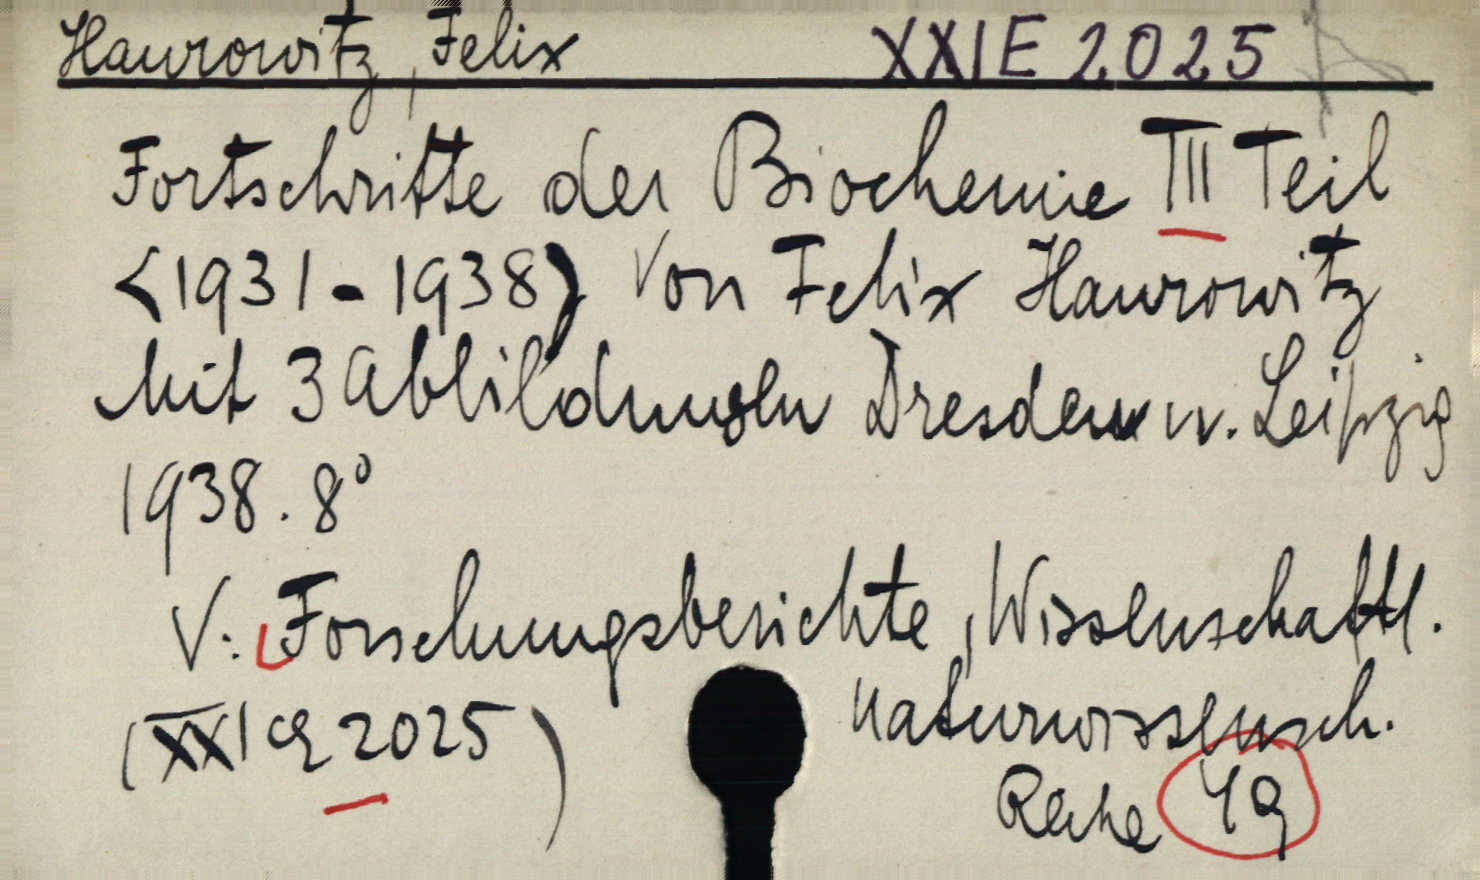 Haurowitz, Felix XXIE 2025
Fortschritte der Biochemie III Teil
<1931-1938> Von Felix Haurowitz
Mit 3 Abbildungen Dresden u. Leipzig
1938. 8°
V: Forschungsberichte, Wissenschaftl.
naturwissensch.
(XXI e 2025)
Reihe 49